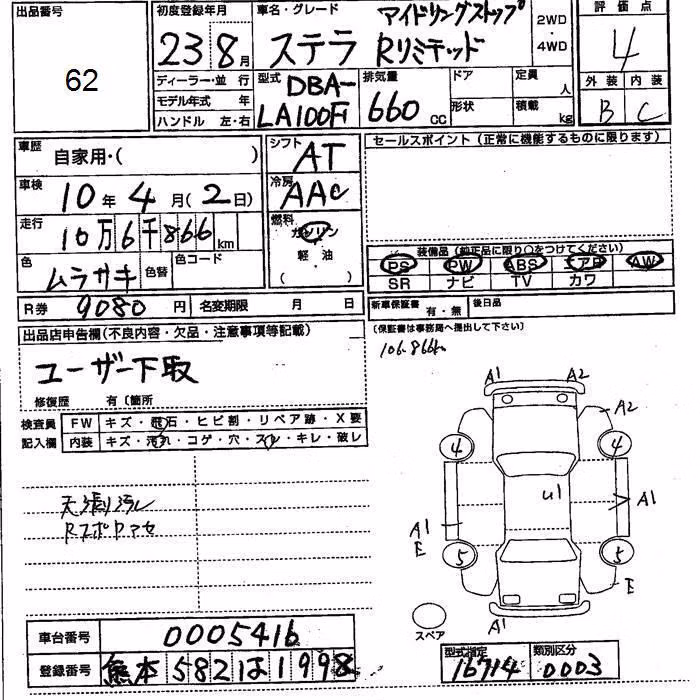 出品番号
62
初度登録年月
23年8月
車名・グレード
アイドリングストップ
ステラ Rリミテッド
2WD
・
4WD
評価点
4
外装 内装
B C
ディーラー・並行
モデル年式 年
ハンドル 左・右
型式
DBA-
LA100F
排気量
660 cc
ドア
形状
定員
人
積載
kg
車歴
自家用・( )
車検
10年4月(2日)
走行
10万6千866km
色
ムラサキ
色替
色コード
シフト
AT
冷房
AAC
燃料
ガソリン
軽油
( )
セールスポイント(正常に機能するものに限ります)
装備品(純正品に限り○をつけてください)
PS PW ABS エアB AW
SR ナビ TV カワ
R券 9080円
名変期限 月 日
新車保証書
有・無
後日品
(保証書は事務局へ提出して下さい)
出品店申告欄(不良内容・欠品・注意事項等記載)
ユーザー下取
修復歴 有(箇所
106.866km
検査員
記入欄
FW キズ・飛石・ヒビ割・リペア跡・X要
内装 キズ・汚れ・コゲ・穴・スレ・キレ・破レ
天張汚レ
A1 A2
A2
4 4
u1
A1
A1
E
5 5
E
A1
スペア
車台番号 0005416
登録番号 熊本582は1998
型式指定 16714
類別区分 0003